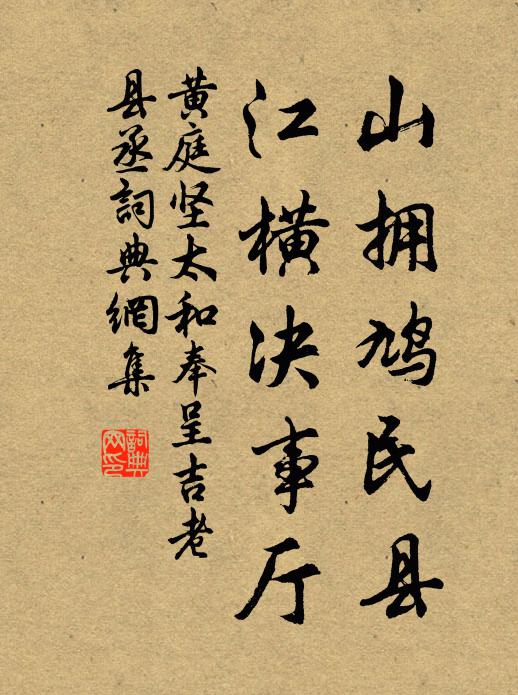 山拥鸠民县
江横决事厅
黄庭坚太和奉呈吉老
县丞詞典網集
詞典网印